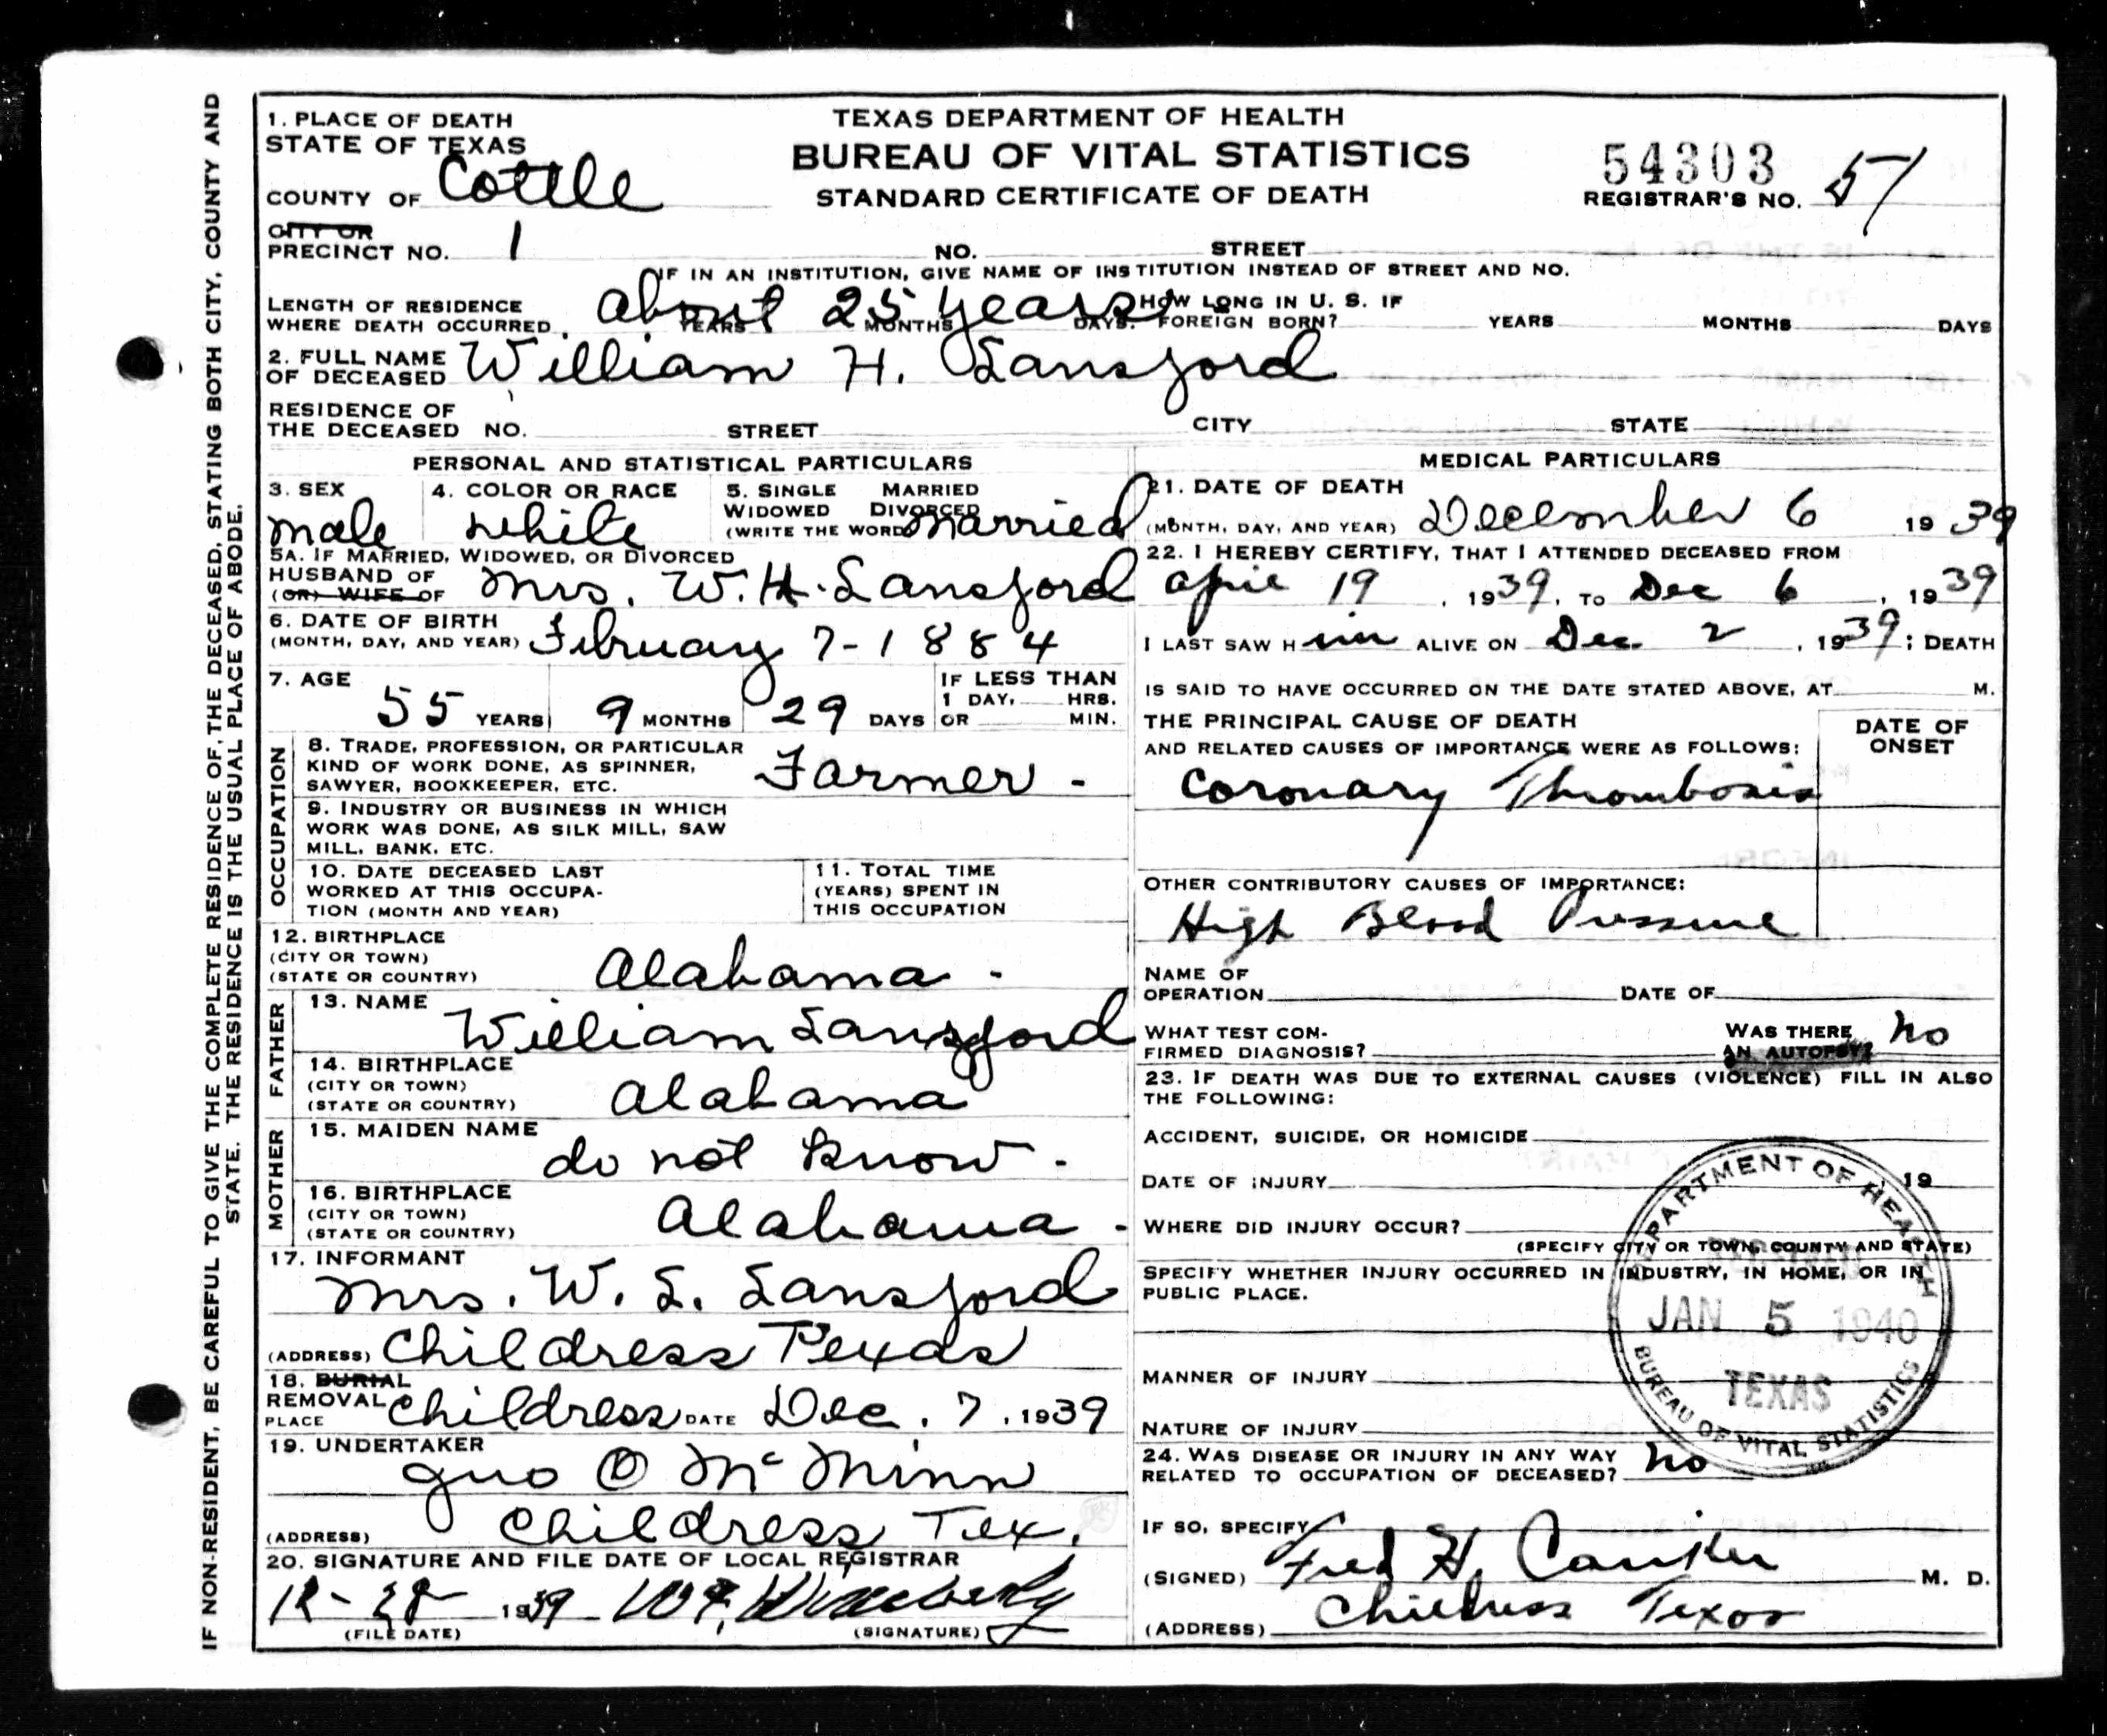 IF NON-RESIDENT, BE CAREFUL TO GIVE THE COMPLETE RESIDENCE OF THE DECEASED, STATING BOTH CITY, COUNTY AND
STATE. THE RESIDENCE IS THE USUAL PLACE OF ABODE.
TEXAS DEPARTMENT OF HEALTH
BUREAU OF VITAL STATISTICS
STANDARD CERTIFICATE OF DEATH
54303
REGISTRAR'S NO. 51
1. PLACE OF DEATH
STATE OF TEXAS
COUNTY OF Cottle
CITY OR
PRECINCT NO. 1 NO. STREET
IF IN AN INSTITUTION, GIVE NAME OF INSTITUTION INSTEAD OF STREET AND NO.
LENGTH OF RESIDENCE
WHERE DEATH OCCURRED about 25 years YEARS MONTHS DAYS. HOW LONG IN U. S. IF
FOREIGN BORN? YEARS MONTHS DAYS
2. FULL NAME
OF DECEASED William H. Lansford
RESIDENCE OF
THE DECEASED NO. STREET CITY STATE
PERSONAL AND STATISTICAL PARTICULARS
3. SEX
male
4. COLOR OR RACE
white
5. SINGLE MARRIED
WIDOWED DIVORCED
(WRITE THE WORD) married
5A. IF MARRIED, WIDOWED, OR DIVORCED
HUSBAND OF
(OR) WIFE OF Mrs. W. H. Lansford
6. DATE OF BIRTH
(MONTH, DAY, AND YEAR) February 7-1884
7. AGE
55 YEARS 9 MONTHS 29 DAYS
IF LESS THAN
1 DAY, HRS.
OR MIN.
OCCUPATION
8. TRADE, PROFESSION, OR PARTICULAR
KIND OF WORK DONE, AS SPINNER,
SAWYER, BOOKKEEPER, ETC. Farmer -
9. INDUSTRY OR BUSINESS IN WHICH
WORK WAS DONE, AS SILK MILL, SAW
MILL, BANK, ETC.
10. DATE DECEASED LAST
WORKED AT THIS OCCUPA-
TION (MONTH AND YEAR)
11. TOTAL TIME
(YEARS) SPENT IN
THIS OCCUPATION
12. BIRTHPLACE
(CITY OR TOWN)
(STATE OR COUNTRY) Alabama -
FATHER
13. NAME
William Lansford
14. BIRTHPLACE
(CITY OR TOWN)
(STATE OR COUNTRY) Alabama
MOTHER
15. MAIDEN NAME
do not know -
16. BIRTHPLACE
(CITY OR TOWN)
(STATE OR COUNTRY) Alabama -
17. INFORMANT
Mrs. W. L. Lansford
(ADDRESS) Childress Texas
18. BURIAL
REMOVAL
PLACE Childress DATE Dec. 7, 1939
19. UNDERTAKER
Jno O McMinn
(ADDRESS) Childress Tex.
20. SIGNATURE AND FILE DATE OF LOCAL REGISTRAR
12-28 1939
(FILE DATE) (SIGNATURE)
MEDICAL PARTICULARS
21. DATE OF DEATH
(MONTH, DAY, AND YEAR) December 6 1939
22. I HEREBY CERTIFY, THAT I ATTENDED DECEASED FROM
April 19, 1939, TO Dec 6, 1939
I LAST SAW H im ALIVE ON Dec. 2, 1939; DEATH
IS SAID TO HAVE OCCURRED ON THE DATE STATED ABOVE, AT M.
THE PRINCIPAL CAUSE OF DEATH
AND RELATED CAUSES OF IMPORTANCE WERE AS FOLLOWS:
DATE OF
ONSET
Coronary Thrombosis
OTHER CONTRIBUTORY CAUSES OF IMPORTANCE:
High Blood Pressure
NAME OF
OPERATION DATE OF
WHAT TEST CON-
FIRMED DIAGNOSIS?
WAS THERE
AN AUTOPSY? no
23. IF DEATH WAS DUE TO EXTERNAL CAUSES (VIOLENCE) FILL IN ALSO
THE FOLLOWING:
ACCIDENT, SUICIDE, OR HOMICIDE
DATE OF INJURY , 19
WHERE DID INJURY OCCUR?
(SPECIFY CITY OR TOWN, COUNTY AND STATE)
SPECIFY WHETHER INJURY OCCURRED IN INDUSTRY, IN HOME, OR IN
PUBLIC PLACE.
MANNER OF INJURY
NATURE OF INJURY
DEPARTMENT OF HEALTH
JAN 5 1940
TEXAS
BUREAU OF VITAL STATISTICS
24. WAS DISEASE OR INJURY IN ANY WAY
RELATED TO OCCUPATION OF DECEASED? no
IF SO, SPECIFY
(SIGNED) Fred H. M. D.
(ADDRESS) Childress Texas